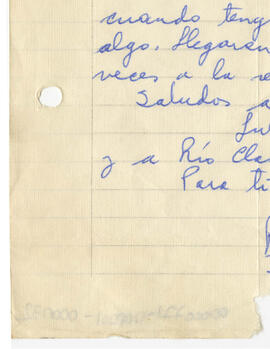 cuando teng
algo. Llegaran
veces a la re
Saludos a
y a Río Cla
Para ti